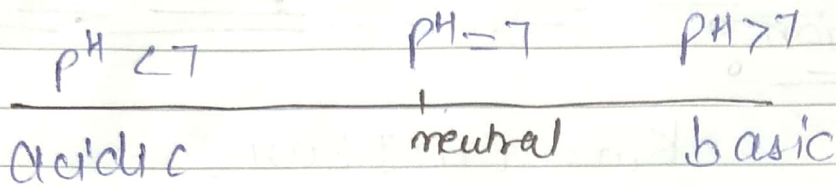 pH <7 pH=7 pH>7
acidic neutral basic